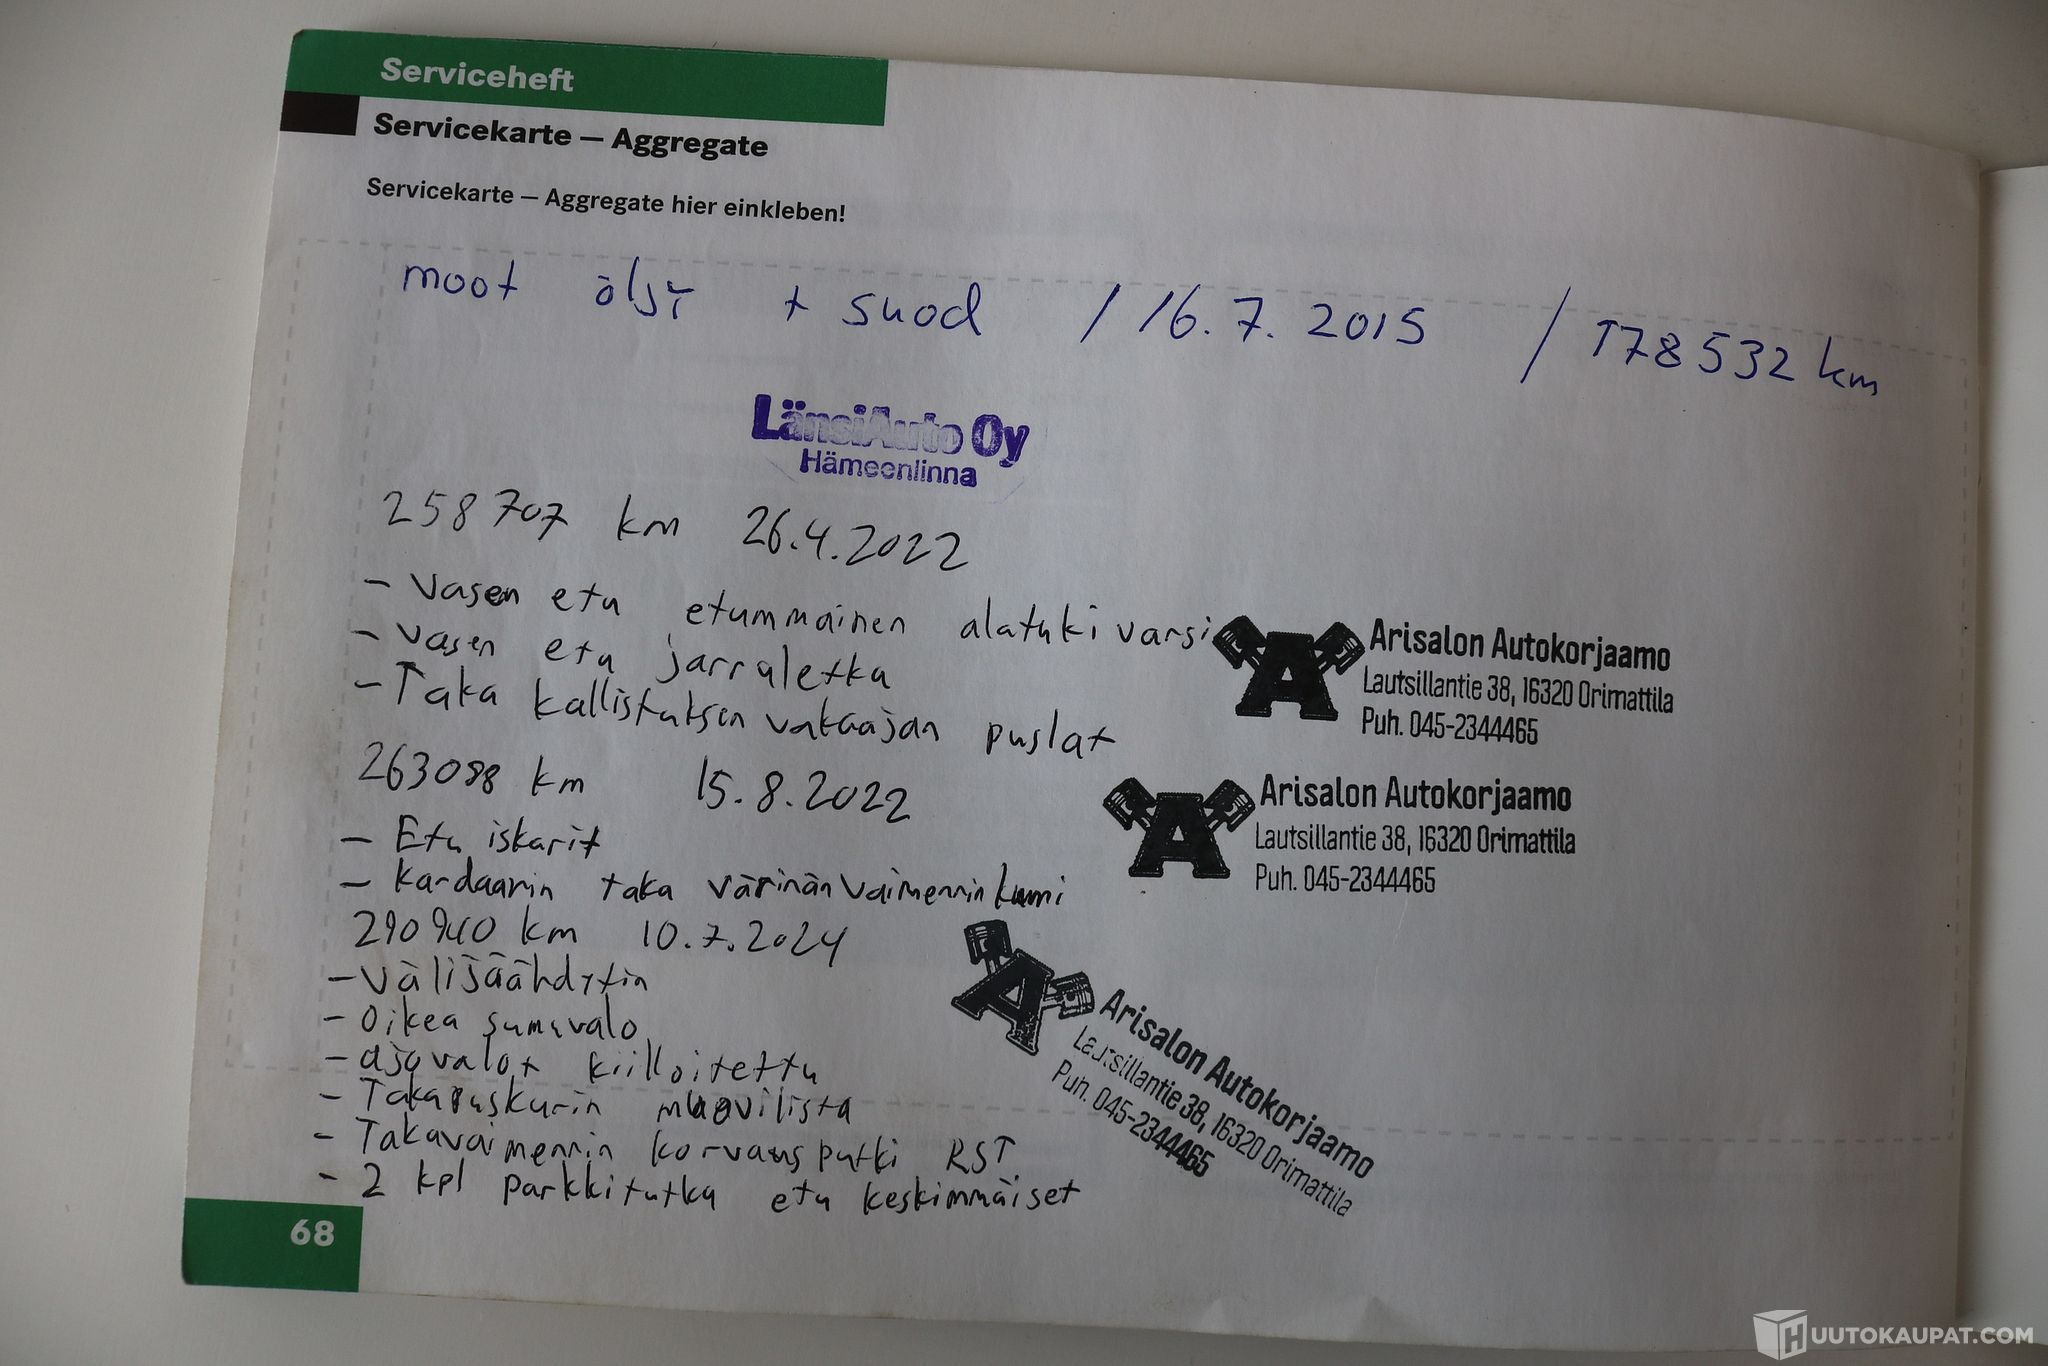 Serviceheft
Servicekarte — Aggregate
Servicekarte — Aggregate hier einkleben!
moot öljy + suod / 16.7.2015 / 178532 km
LänsiAuto Oy
Hämeenlinna
258707 km 26.4.2022
- Vasen etu etummainen alatukivarsi
- Vasen etu jarruletku
- Taka kallistuksen vakaajan puslat
Arisalon Autokorjaamo
Lautsillantie 38, 16320 Orimattila
Puh. 045-2344465
263088 km 15.8.2022
- Etu iskarit
- Kardaanin taka värinänvaimennin kumi
Arisalon Autokorjaamo
Lautsillantie 38, 16320 Orimattila
Puh. 045-2344465
290940 km 10.7.2024
- Välijäähdytin
- Oikea sumuvalo
- ajovalot kiilloitettu
- Takapuskurin muovilista
- Takavaimennin korvausputki RST
- 2 kpl parkkitutka etu keskimmäiset
Arisalon Autokorjaamo
Lautsillantie 38, 16320 Orimattila
Puh. 045-2344465
68
HUUTOKAUPAT.COM